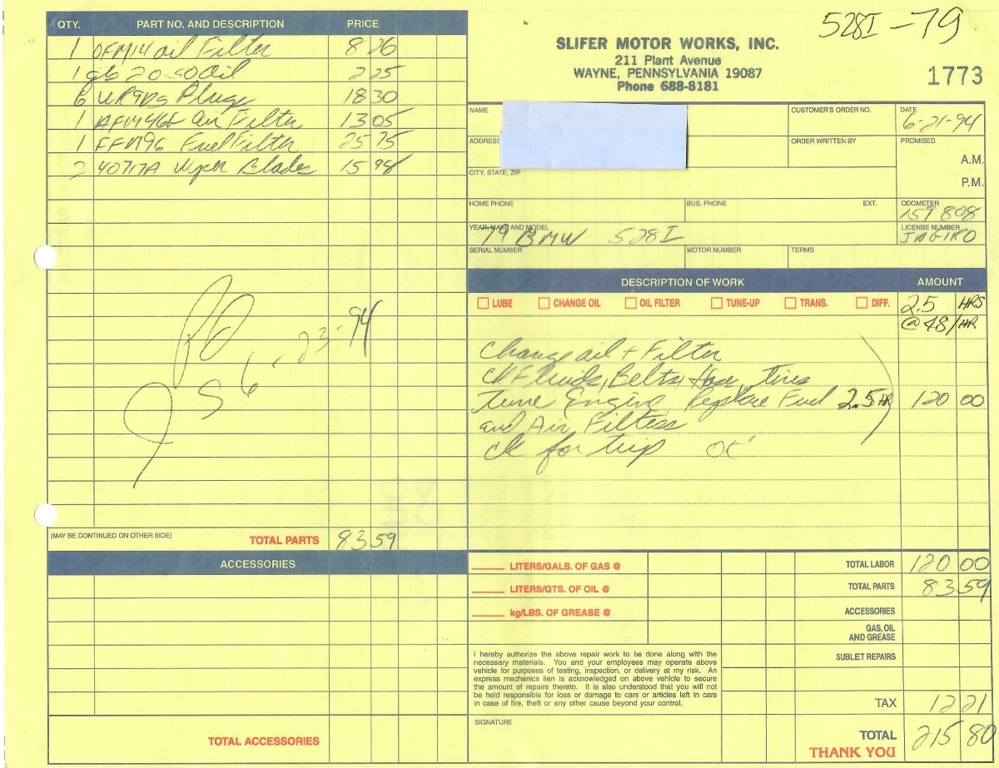 528I - 79
QTY. PART NO. AND DESCRIPTION PRICE
1 OFM14 oil Filter 8 26
1 20-50 oil 2 25
6 WR9DS Plugs 18 30
1 AFM46F air Filter 13 05
1 FFM96 Fuel Filter 25 75
2 40717A wiper Blades 15 98
PD
6-23-94
(MAY BE CONTINUED ON OTHER SIDE) TOTAL PARTS 83 59
ACCESSORIES
TOTAL ACCESSORIES
SLIFER MOTOR WORKS, INC.
211 Plant Avenue
WAYNE, PENNSYLVANIA 19087
Phone 688-8181
1773
NAME CUSTOMER'S ORDER NO. DATE 6-21-94
ADDRESS ORDER WRITTEN BY PROMISED
A.M.
P.M.
CITY, STATE, ZIP
HOME PHONE BUS. PHONE EXT. ODOMETER 159 808
YEAR, MAKE AND MODEL 79 BMW 528I LICENSE NUMBER
SERIAL NUMBER MOTOR NUMBER TERMS
DESCRIPTION OF WORK AMOUNT
LUBE CHANGE OIL OIL FILTER TUNE-UP TRANS. DIFF. 2.5 HRS
@ 48/HR
Change oil + Filter
CK Fluids, Belts, Hose, tires
tune Engine, Replace Fuel 2.5 HR 120 00
and Air Filters
ck for trip OK
LITERS/GALS. OF GAS @ TOTAL LABOR 120 00
LITERS/QTS. OF OIL @ TOTAL PARTS 83 59
kg/LBS. OF GREASE @ ACCESSORIES
GAS, OIL
AND GREASE
SUBLET REPAIRS
I hereby authorize the above repair work to be done along with the
necessary materials. You and your employees may operate above
vehicle for purposes of testing, inspection, or delivery at my risk. An
express mechanics lien is acknowledged on above vehicle to secure
the amount of repairs thereto. It is also understood that you will not
be held responsible for loss or damage to cars or articles left in cars
in case of fire, theft or any other cause beyond your control.
TAX 12 21
SIGNATURE
TOTAL 215 80
THANK YOU